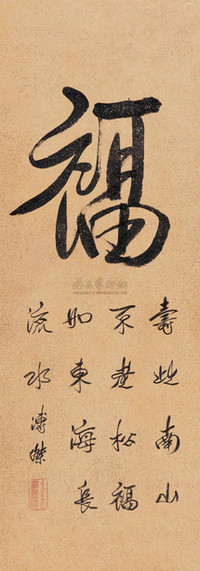 福
壽比南山
不老松福
如東海長
流水溥傑